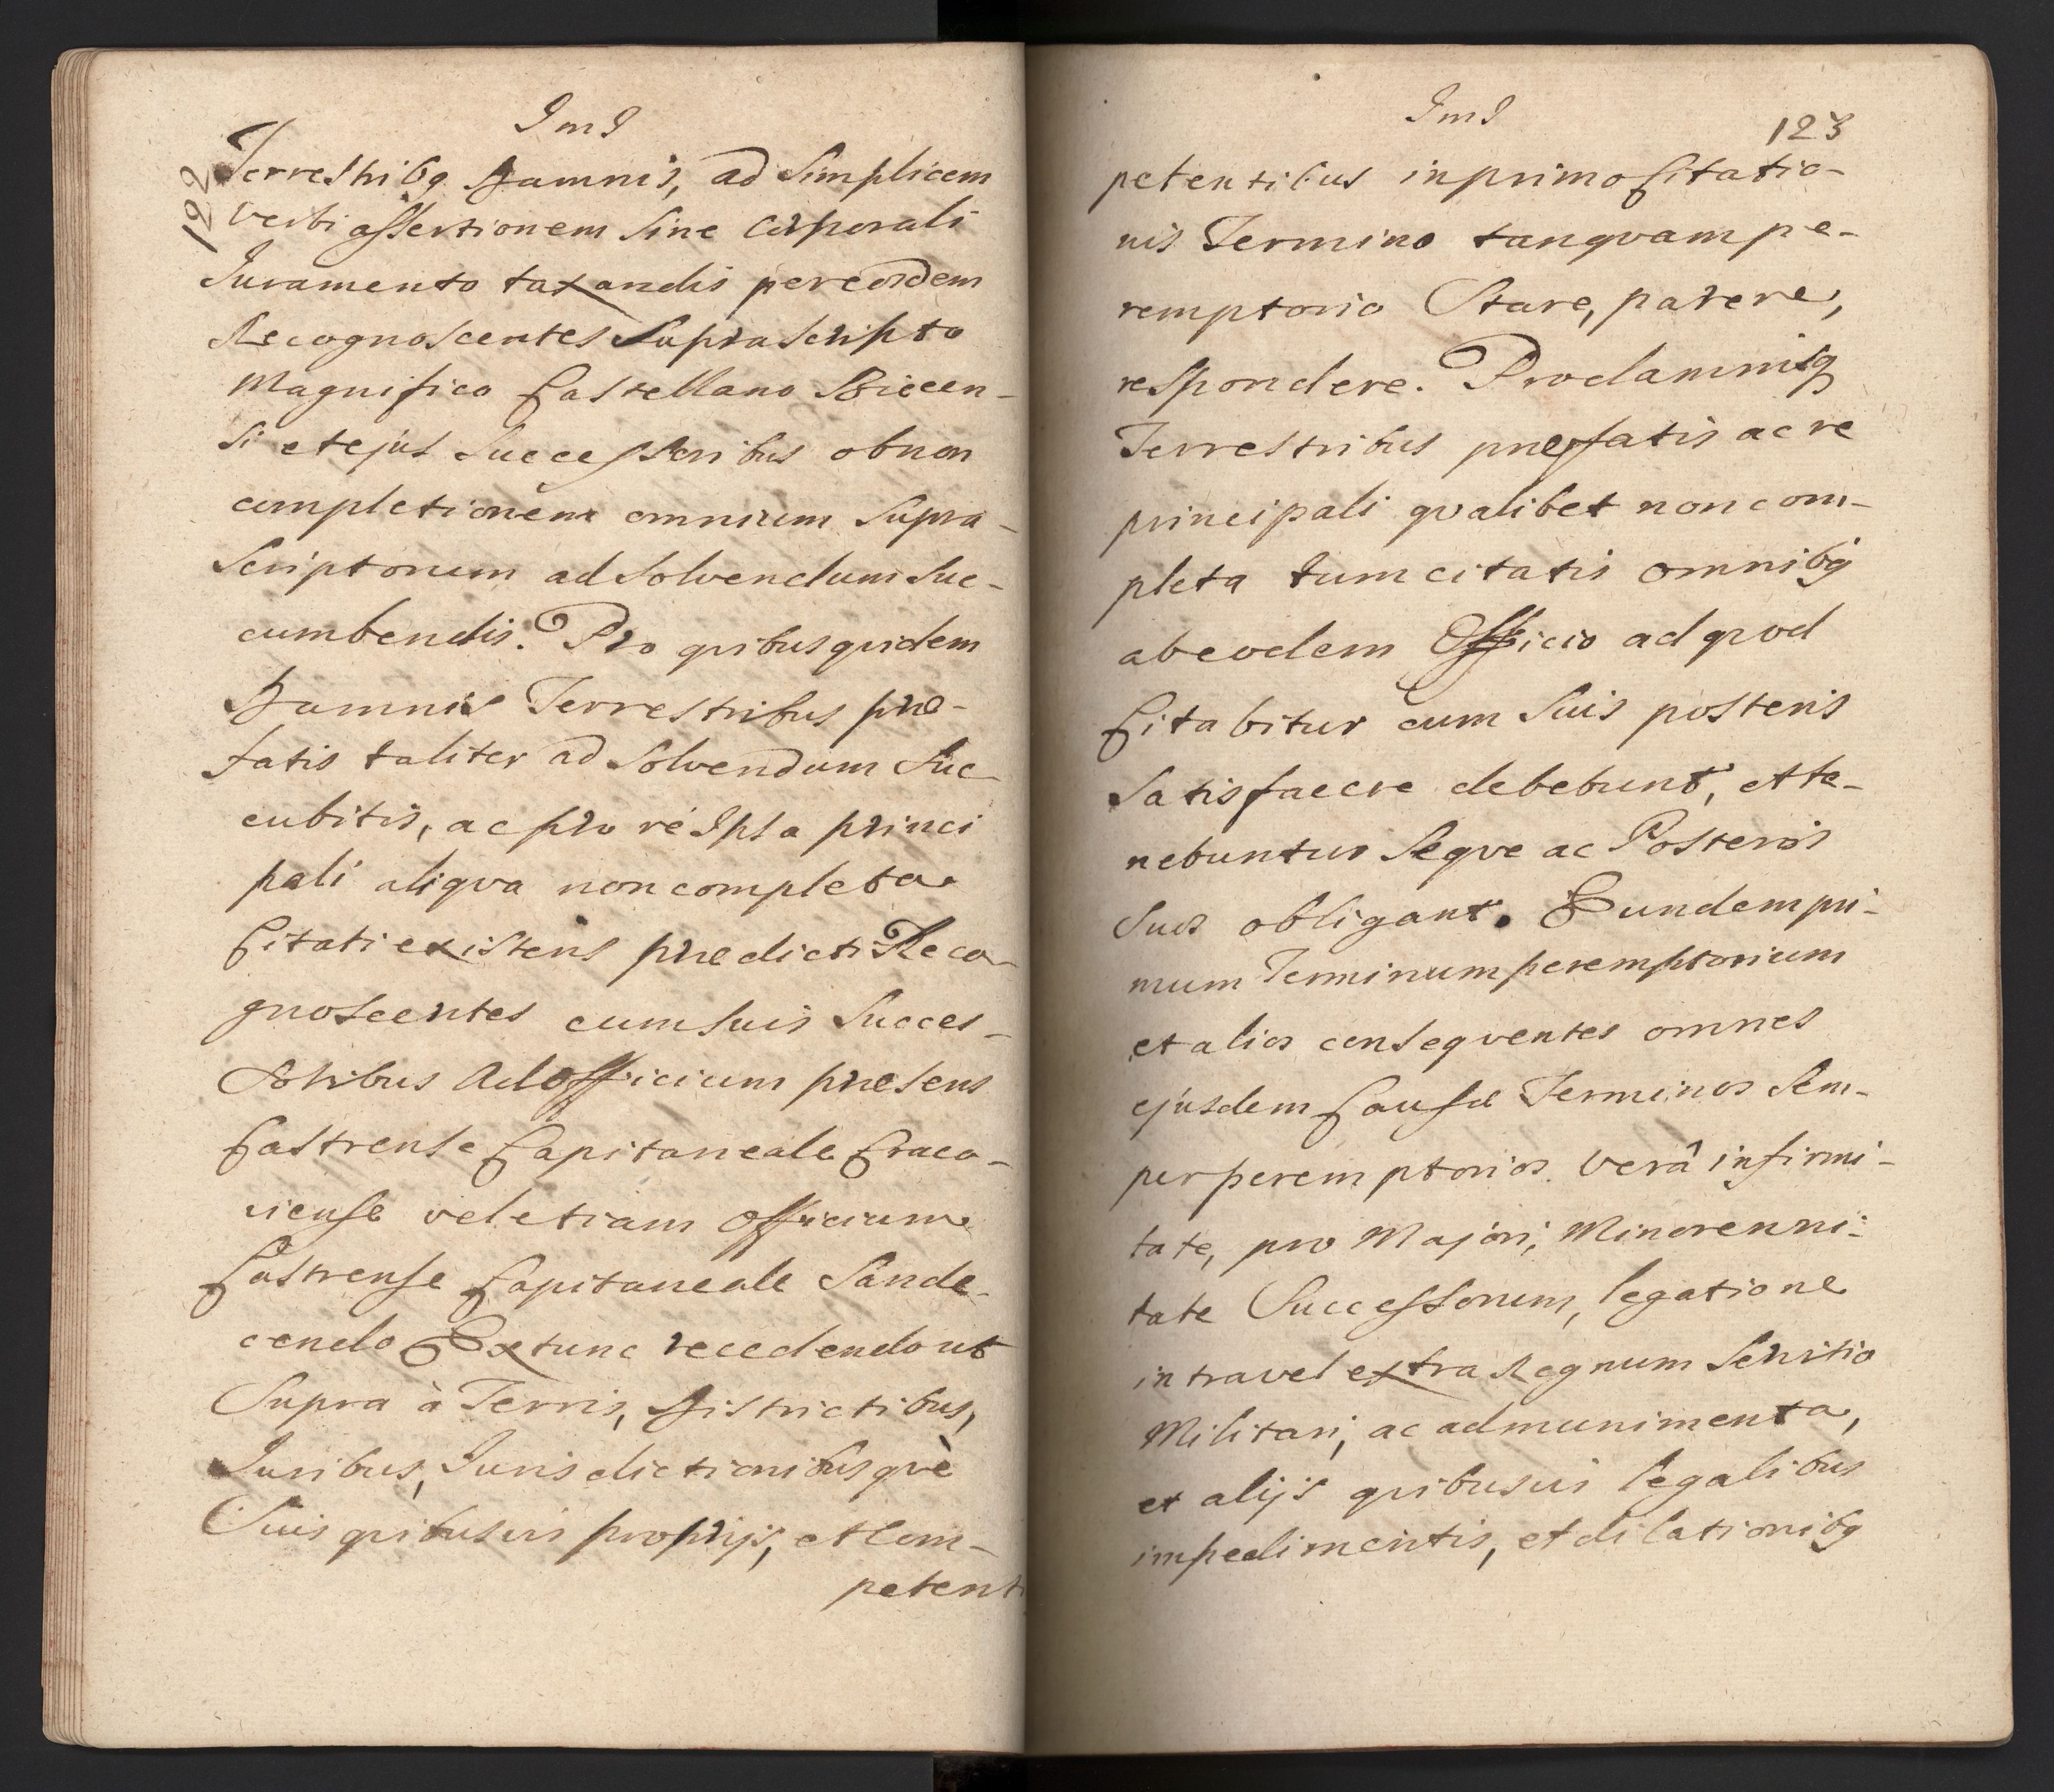 ImI
122
Terrestribq Damnis, ad Simplicem
Verbi assertionem Sine Corporali
Iuramento taxandis per eosdem
Recognoscentes Suprascripto
Magnifico Castellano Biecen-
si et ejus Successoribus ob non
completionem omnium Supra-
Scriptorum ad Solvendum Suc-
cumbendis. Pro qvibus qvidem
Damnis Terrestribus præ-
fatis taliter ad Solvendum Suc-
cubitis, ac pro ré Ipsa princi
pali aliqva non completa
Citati existens prædicti Reco-
gnoscentes cum Suis Succes-
soribus Ad Officium præsens
Castrense Capitaneale Craco-
viense vel etiam Officium
Castrense Capitaneale Sande-
cendo Extunc recedendo ut
Supra à Terris, Districtibus,
Iuribus, Iurisdictionibusqvè
Suis qvibusvis proprijs, et Com-
petenti
ImI
123
petentibus in primo Citatio-
nis Termino tanqvam pe-
remptorio Stare, parere,
respondere. Pro damnisq
Terrestribus præfatis ac re
principali qvalibet non com-
pleta tum citatis omnibq
ab eodem Officio ad qvod
Citabitur cum Suis posteris
Satisfacere debebunt, et te-
nebuntur Seqve ac Posteros
Suos obligant. Eundem pri-
mum Terminum peremptorium
et alios conseqventes omnes
ejusdem Causæ Terminos Sem-
per peremptorios. Verâ infirmi-
tate, pro Majori, Minorenni-
tate Successorum, legatione
intra vel extra Regnum Servitio
Militari, ac ad munimenta,
et alijs qvibusvis legalibus
impedimentis, et dilationibq